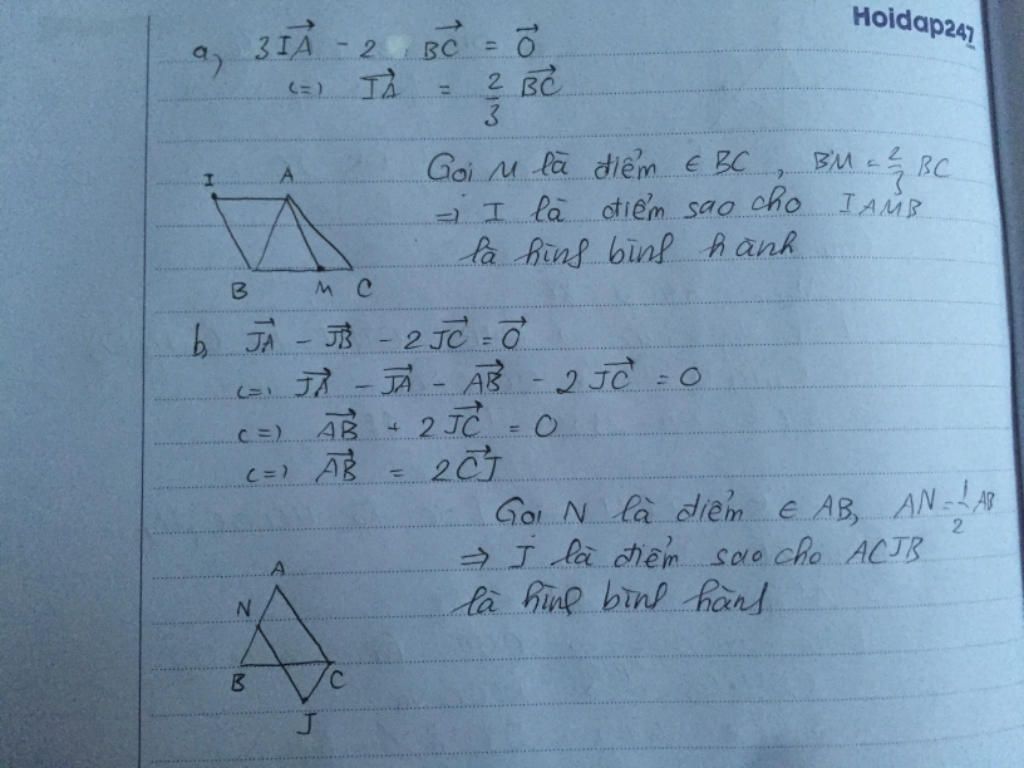 Hoidap247
a, 3IA→ - 2 BC→ = O→
(=) IA→ = 2/3 BC→
Gọi M là điểm ∈ BC, BM = 2/3 BC
=) I là điểm sao cho IAMB
là hình bình hành
I A
B M C
b, JA→ - JB→ - 2JC→ = O→
(=) JA→ - JA→ - AB→ - 2JC→ = 0
(=) AB→ + 2JC→ = 0
(=) AB→ = 2CJ→
Gọi N là điểm ∈ AB, AN = 1/2 AB
⇒ J là điểm sao cho ACJB
là hình bình hành
A
N
B C
J